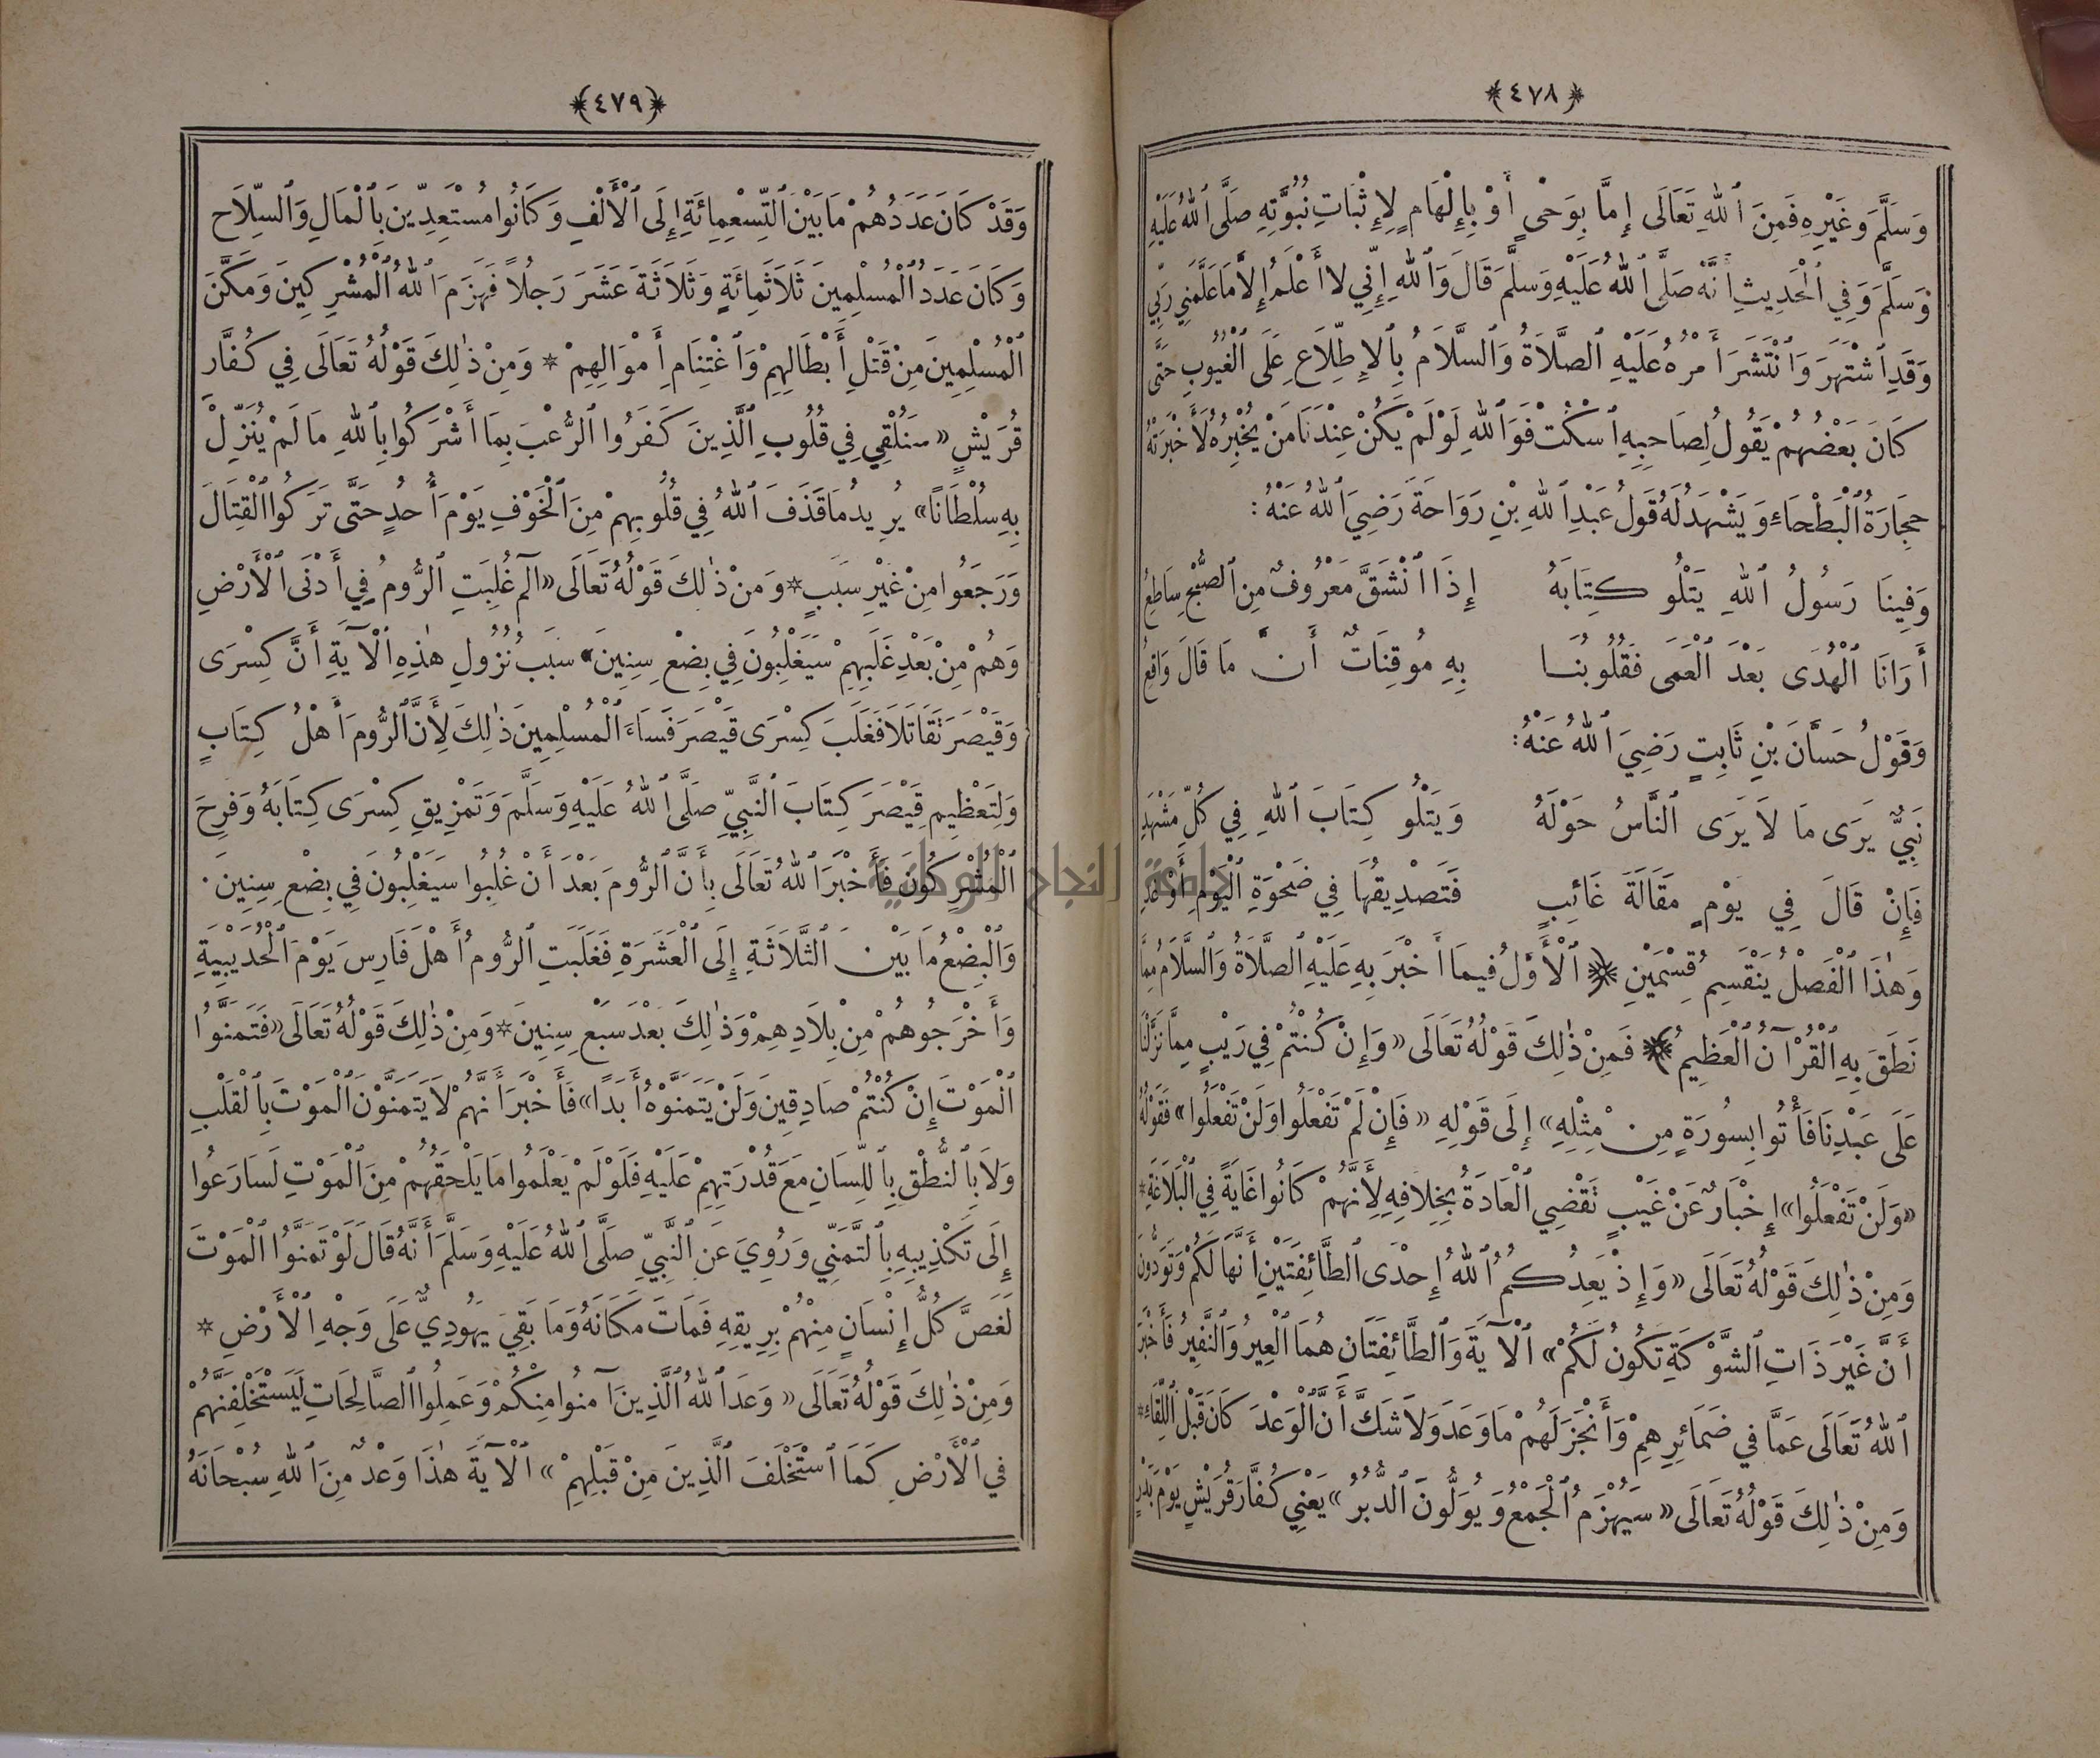 ﴿٤٧٨﴾
وَسَلَّمَ وَغَيْرِهِ فَمِنَ ٱللهِ تَعَالَى إِمَّا بِوَحْيٍ أَوْ بِإِلْهَامٍ لِإِثْبَاتِ نُبُوَّتِهِ صَلَّى ٱللهُ عَلَيْهِ
وَسَلَّمَ وَفِي ٱلْحَدِيثِ أَنَّهُ صَلَّى ٱللهُ عَلَيْهِ وَسَلَّمَ قَالَ وَٱللهِ إِنِّي لَا أَعْلَمُ إِلَّا مَا عَلَّمَنِي رَبِّي
وَقَدِ ٱشْتَهَرَ وَٱنْتَشَرَ أَمْرُهُ عَلَيْهِ ٱلصَّلَاةُ وَٱلسَّلَامُ بِٱلْإِطِّلَاعِ عَلَى ٱلْغُيُوبِ حَتَّى
كَانَ بَعْضُهُمْ يَقُولُ لِصَاحِبِهِ ٱسْكُتْ فَوَٱللهِ لَوْ لَمْ يَكُنْ عِنْدَنَا مَنْ يُخْبِرُهُ لَأَخْبَرَتْهُ
حِجَارَةُ ٱلْبَطْحَاءِ وَيَشْهَدُ لَهُ قَوْلُ عَبْدِ ٱللهِ بْنِ رَوَاحَةَ رَضِيَ ٱللهُ عَنْهُ :
وَفِينَا رَسُولُ ٱللهِ يَتْلُو كِتَابَهُ إِذَا ٱنْشَقَّ مَعْرُوفٌ مِنَ ٱلصُّبْحِ سَاطِعُ
أَرَانَا ٱلْهُدَى بَعْدَ ٱلْعَمَى فَقُلُوبُنَا بِهِ مُوقِنَاتٌ أَنَّ مَا قَالَ وَاقِعُ
وَقَوْلُ حَسَّانَ بْنِ ثَابِتٍ رَضِيَ ٱللهُ عَنْهُ :
نَبِيٌّ يَرَى مَا لَا يَرَى ٱلنَّاسُ حَوْلَهُ وَيَتْلُو كِتَابَ ٱللهِ فِي كُلِّ مَشْهَدِ
فَإِنْ قَالَ فِي يَوْمٍ مَقَالَةَ غَائِبٍ فَتَصْدِيقُهَا فِي ضَحْوَةِ ٱلْيَوْمِ أَوْ غَدِ
وَهٰذَا ٱلْفَصْلُ يَنْقَسِمُ قِسْمَيْنِ ﴿ ٱلْأَوَّلُ فِيمَا أَخْبَرَ بِهِ عَلَيْهِ ٱلصَّلَاةُ وَٱلسَّلَامُ مِمَّا
نَطَقَ بِهِ ٱلْقُرْآنُ ٱلْعَظِيمُ ﴾ فَمِنْ ذٰلِكَ قَوْلُهُ تَعَالَى «وَإِنْ كُنْتُمْ فِي رَيْبٍ مِمَّا نَزَّلْنَا
عَلَى عَبْدِنَا فَأْتُوا بِسُورَةٍ مِنْ مِثْلِهِ» إِلَى قَوْلِهِ «فَإِنْ لَمْ تَفْعَلُوا وَلَنْ تَفْعَلُوا» فَقَوْلُهُ
«وَلَنْ تَفْعَلُوا» إِخْبَارٌ عَنْ غَيْبٍ تَقْضِي ٱلْعَادَةُ بِخِلَافِهِ لِأَنَّهُمْ كَانُوا غَايَةً فِي ٱلْبَلَاغَةِ *
وَمِنْ ذٰلِكَ قَوْلُهُ تَعَالَى «وَإِذْ يَعِدُكُمُ ٱللهُ إِحْدَى ٱلطَّائِفَتَيْنِ أَنَّهَا لَكُمْ وَتَوَدُّونَ
أَنَّ غَيْرَ ذَاتِ ٱلشَّوْكَةِ تَكُونُ لَكُمْ» ٱلْآيَةَ وَٱلطَّائِفَتَانِ هُمَا ٱلْعِيرُ وَٱلنَّفِيرُ فَأَخْبَرَ
ٱللهُ تَعَالَى عَمَّا فِي ضَمَائِرِهِمْ وَأَنْجَزَ لَهُمْ مَا وَعَدَ وَلَا شَكَّ أَنَّ ٱلْوَعْدَ كَانَ قَبْلَ ٱللِّقَاءِ *
وَمِنْ ذٰلِكَ قَوْلُهُ تَعَالَى «سَيُهْزَمُ ٱلْجَمْعُ وَيُوَلُّونَ ٱلدُّبُرَ» يَعْنِي كُفَّارَ قُرَيْشٍ يَوْمَ بَدْرٍ
﴿٤٧٩﴾
وَقَدْ كَانَ عَدَدُهُمْ مَا بَيْنَ ٱلتِّسْعِمِائَةِ إِلَى ٱلْأَلْفِ وَكَانُوا مُسْتَعِدِّينَ بِٱلْمَالِ وَٱلسِّلَاحِ
وَكَانَ عَدَدُ ٱلْمُسْلِمِينَ ثَلَاثَمِائَةٍ وَثَلَاثَةَ عَشَرَ رَجُلًا فَهَزَمَ ٱللهُ ٱلْمُشْرِكِينَ وَمَكَّنَ
ٱلْمُسْلِمِينَ مِنْ قَتْلِ أَبْطَالِهِمْ وَٱغْتِنَامِ أَمْوَالِهِمْ * وَمِنْ ذٰلِكَ قَوْلُهُ تَعَالَى فِي كُفَّارِ
قُرَيْشٍ «سَنُلْقِي فِي قُلُوبِ ٱلَّذِينَ كَفَرُوا ٱلرُّعْبَ بِمَا أَشْرَكُوا بِٱللهِ مَا لَمْ يُنَزِّلْ
بِهِ سُلْطَانًا» يُرِيدُ مَا قَذَفَ ٱللهُ فِي قُلُوبِهِمْ مِنَ ٱلْخَوْفِ يَوْمَ أُحُدٍ حَتَّى تَرَكُوا ٱلْقِتَالَ
وَرَجَعُوا مِنْ غَيْرِ سَبَبٍ * وَمِنْ ذٰلِكَ قَوْلُهُ تَعَالَى «الٓمٓ غُلِبَتِ ٱلرُّومُ فِي أَدْنَى ٱلْأَرْضِ
وَهُمْ مِنْ بَعْدِ غَلَبِهِمْ سَيَغْلِبُونَ فِي بِضْعِ سِنِينَ» سَبَبُ نُزُولِ هٰذِهِ ٱلْآيَةِ أَنَّ كِسْرَى
وَقَيْصَرَ تَقَاتَلَا فَغَلَبَ كِسْرَى قَيْصَرَ فَسَاءَ ٱلْمُسْلِمِينَ ذٰلِكَ لِأَنَّ ٱلرُّومَ أَهْلُ كِتَابٍ
وَلِتَعْظِيمِ قَيْصَرَ كِتَابَ ٱلنَّبِيِّ صَلَّى ٱللهُ عَلَيْهِ وَسَلَّمَ وَتَمْزِيقِ كِسْرَى كِتَابَهُ وَفَرِحَ
ٱلْمُشْرِكُونَ فَأَخْبَرَ ٱللهُ تَعَالَى بِأَنَّ ٱلرُّومَ بَعْدَ أَنْ غُلِبُوا سَيَغْلِبُونَ فِي بِضْعِ سِنِينَ .
وَٱلْبِضْعُ مَا بَيْنَ ٱلثَّلَاثَةِ إِلَى ٱلْعَشَرَةِ فَغَلَبَتِ ٱلرُّومُ أَهْلَ فَارِسَ يَوْمَ ٱلْحُدَيْبِيَةِ
وَأَخْرَجُوهُمْ مِنْ بِلَادِهِمْ وَذٰلِكَ بَعْدَ سَبْعِ سِنِينَ * وَمِنْ ذٰلِكَ قَوْلُهُ تَعَالَى «فَتَمَنَّوُا
ٱلْمَوْتَ إِنْ كُنْتُمْ صَادِقِينَ وَلَنْ يَتَمَنَّوْهُ أَبَدًا» فَأَخْبَرَ أَنَّهُمْ لَا يَتَمَنَّوْنَ ٱلْمَوْتَ بِٱلْقَلْبِ
وَلَا بِٱلنُّطْقِ بِٱللِّسَانِ مَعَ قُدْرَتِهِمْ عَلَيْهِ فَلَوْ لَمْ يَعْلَمُوا مَا يَلْحَقُهُمْ مِنَ ٱلْمَوْتِ لَسَارَعُوا
إِلَى تَكْذِيبِهِ بِٱلتَّمَنِّي وَرُوِيَ عَنِ ٱلنَّبِيِّ صَلَّى ٱللهُ عَلَيْهِ وَسَلَّمَ أَنَّهُ قَالَ لَوْ تَمَنَّوُا ٱلْمَوْتَ
لَغَصَّ كُلُّ إِنْسَانٍ مِنْهُمْ بِرِيقِهِ فَمَاتَ مَكَانَهُ وَمَا بَقِيَ يَهُودِيٌّ عَلَى وَجْهِ ٱلْأَرْضِ *
وَمِنْ ذٰلِكَ قَوْلُهُ تَعَالَى «وَعَدَ ٱللهُ ٱلَّذِينَ آمَنُوا مِنْكُمْ وَعَمِلُوا ٱلصَّالِحَاتِ لَيَسْتَخْلِفَنَّهُمْ
فِي ٱلْأَرْضِ كَمَا ٱسْتَخْلَفَ ٱلَّذِينَ مِنْ قَبْلِهِمْ» ٱلْآيَةَ هٰذَا وَعْدٌ مِنَ ٱللهِ سُبْحَانَهُ
جامعة النجاح الوطنية